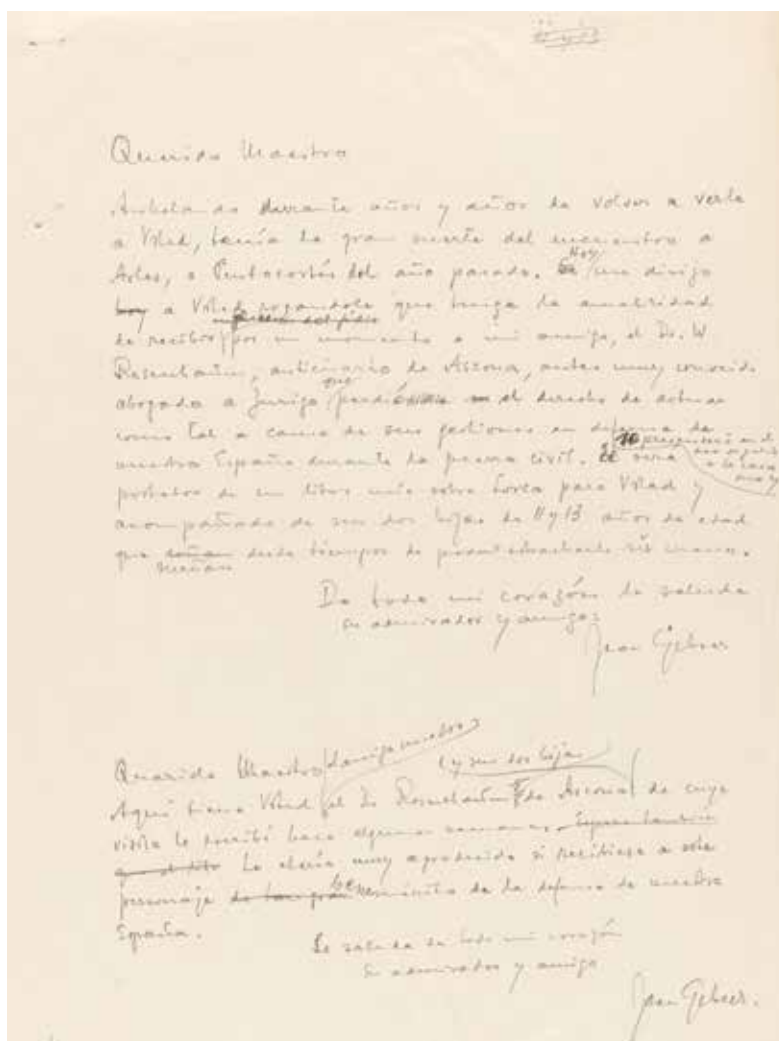 Querido Maestro
Anhelando durante años y años de volver a verle
a Vsted, tenía la gran suerte del encuentro a
Arles, a Pentecostés del año pasado. Hoy me dirijo
hoy a Vsted rogandole que tenga la amabilidad
de recibir por un momento a mi amigo, el Dr. W.
Rosenbaum, anticuario de Ascona, antes muy conocido
abogado a Zurigo que perdió el derecho de actuar
como tal a causa de sus gestiones en defensa de
nuestra España durante la guerra civil. será
portador de un libro mío sobre Lorca para Vsted y
acompañado de sus dos hijas de 11 y 13 años de edad
que sueñan desde tiempos de poder estrecharle sus manos.
De todo mi corazón le saluda
su admirador y amigo:
Jean Gebser
Querido Maestro, amigo nuestro
y sus dos hijas
Aquí tiene Vsted el Dr Rosenbaum de Ascona de cuya
visita le escribí hace algunas semanas.
Le estaría muy agradecido si recibiese a este
personaje benemérito de la defensa de nuestra
España.
Le saluda de todo mi corazón
su admirador y amigo
Jean Gebser.